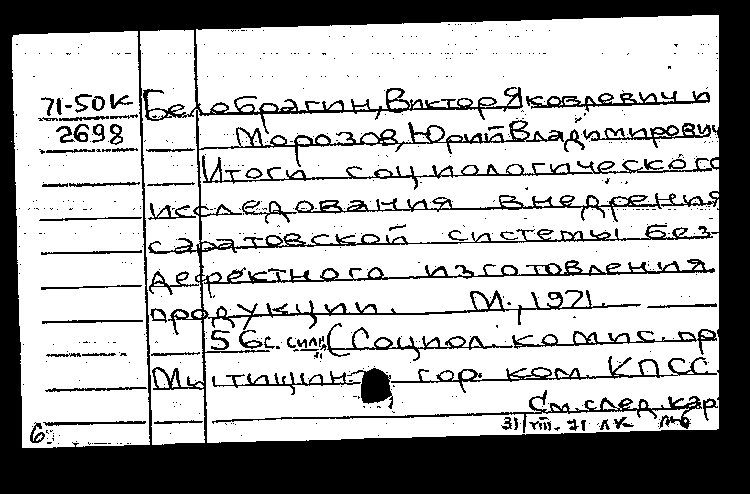 71-50К Белобрагин, Виктор Яковлевич и
2698 Морозов, Юрий Владимирович
Итоги социологического
исследования внедрения
саратовской системы без-
дефектного изготовления
продукции. М., 1971.
56 с. с илл. (Социол. комис. пр
Мытищин гор. ком. КПСС
См. след. кар
31/VIII-71 ЛК
6